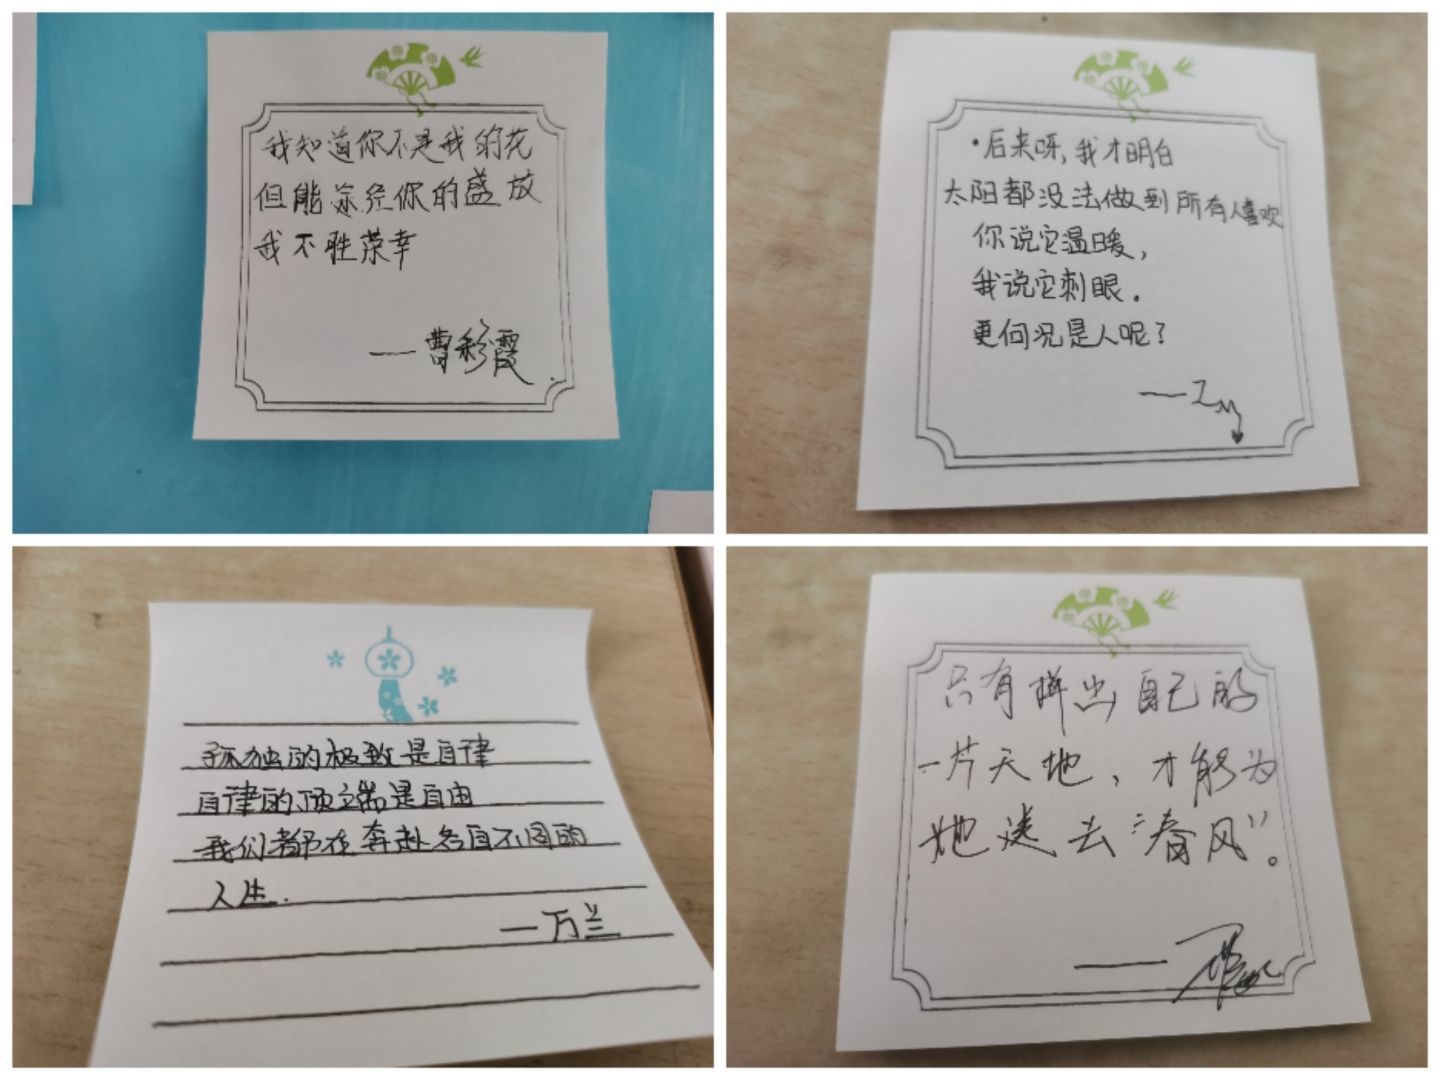 我知道你不是我的花
但能途经你的盛放
我不胜荣幸
—曹彩霞
·后来呀,我才明白
太阳都没法做到所有人喜欢
你说它温暖,
我说它刺眼。
更何况是人呢?
孤独的极致是自律
自律的顶端是自由
我们都在奔赴各自不同的
人生.
—万兰
只有拼出自己的
一片天地,才能为
她送去“春风”。